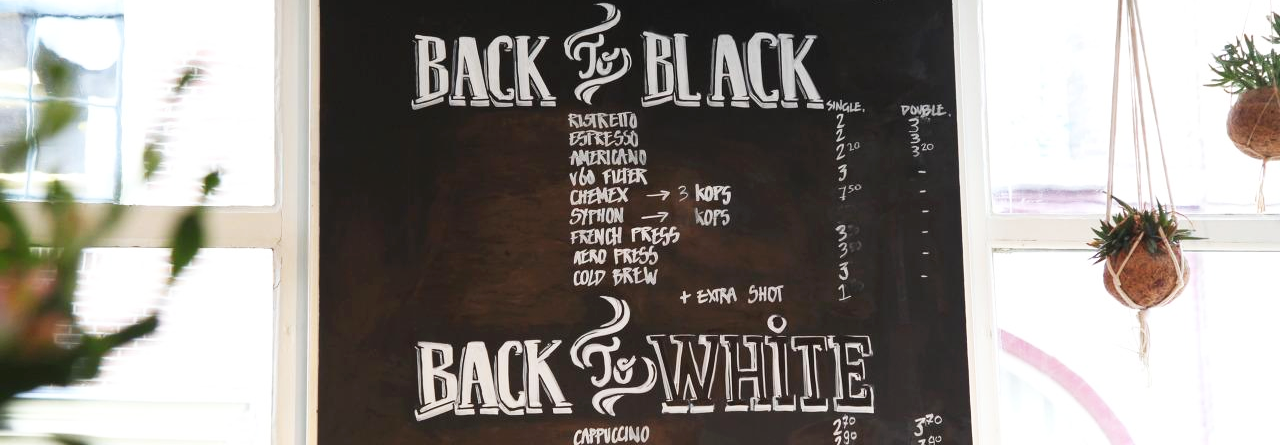 BACK To BLACK
SINGLE. DOUBLE.
RISTRETTO 2 3
ESPRESSO 2 3
AMERICANO 2 20 3 20
V60 FILTER 3 -
CHEMEX → 3 KOPS 7 50 -
SYPHON → KOPS -
FRENCH PRESS 3 -
AERO PRESS 3 -
COLD BREW 3 -
+ EXTRA SHOT 1
BACK To WHiTE
CAPPUCCINO 2 70 3 70
2 90 3 90